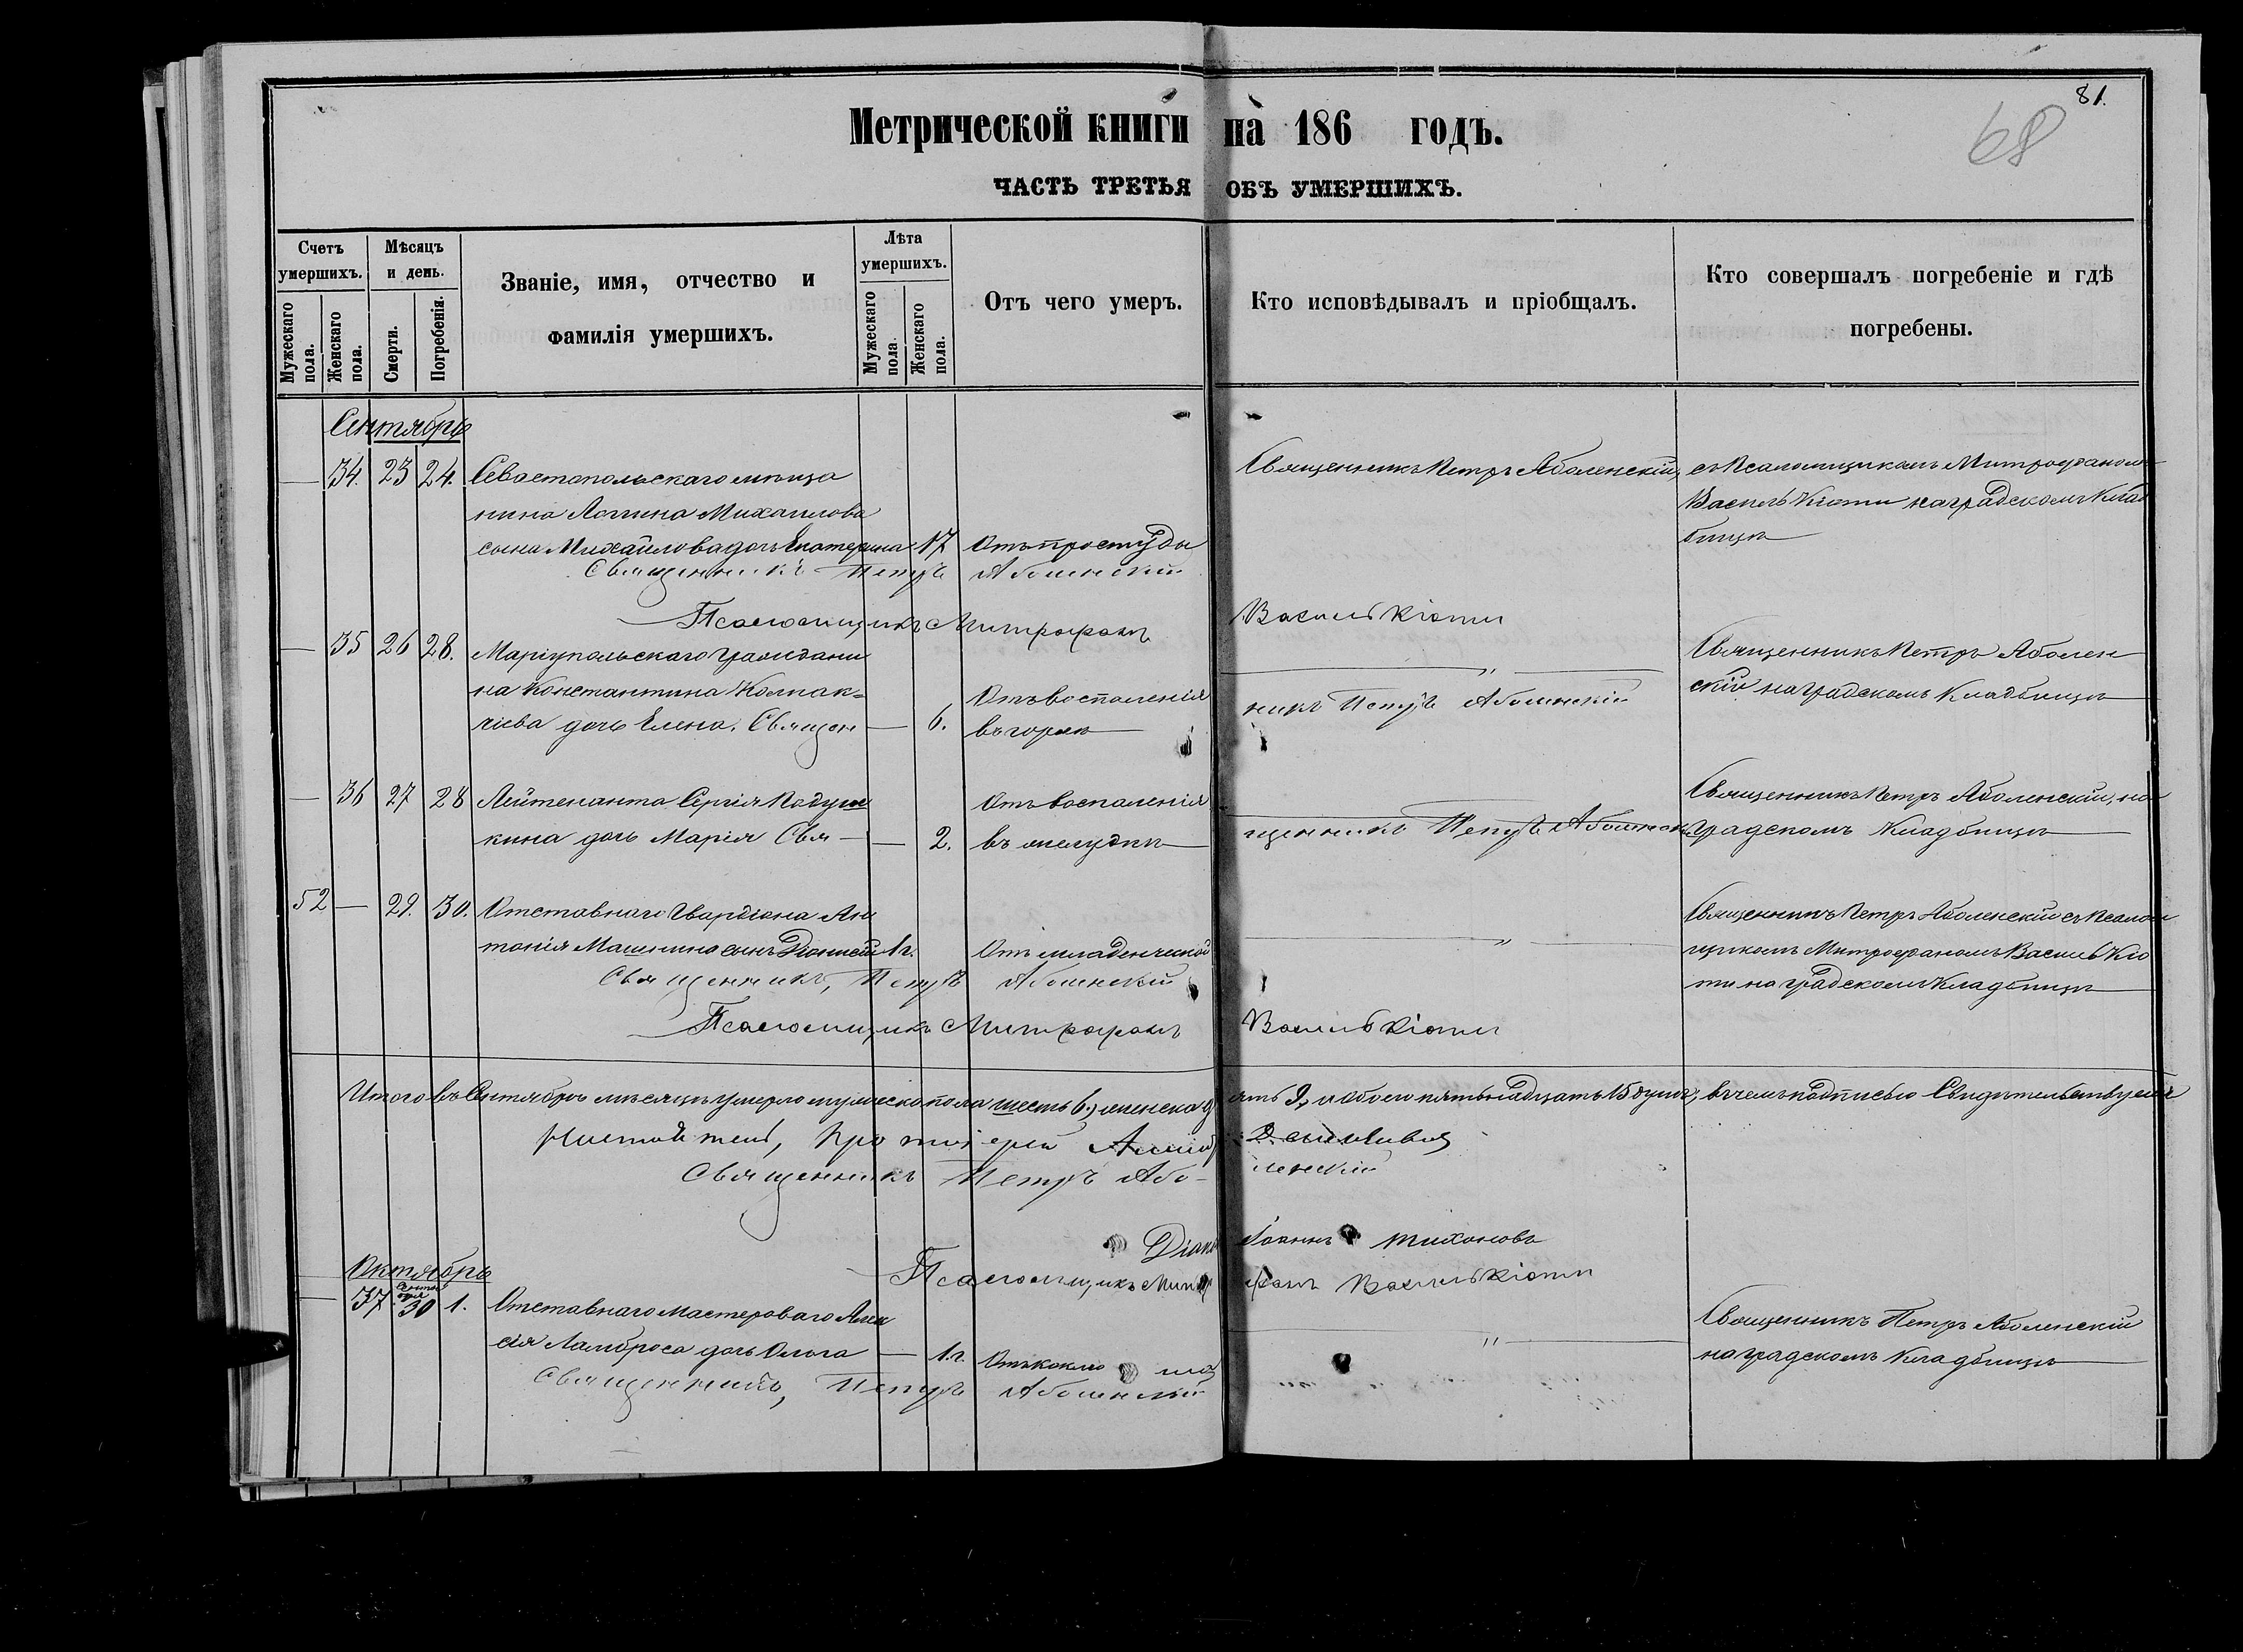 81.
68
Метрической книги на 186 годъ.
ЧАСТЬ ТРЕТЬЯ ОБЪ УМЕРШИХЪ.
Счетъ умершихъ.
Мужескаго пола.
Женскаго пола.
Мѣсяцъ и день.
Смерти.
Погребенія.
Званіе, имя, отчество и
фамилія умершихъ.
Лѣта умершихъ.
Мужескаго пола.
Женскаго пола.
Отъ чего умеръ.
Кто исповѣдывалъ и пріобщалъ.
Кто совершалъ погребеніе и гдѣ
погребены.
Сентябрь
— 34. 23 24. Севастопольскаго мѣща
нина Логгина Михаилова
сына Михайлова дочь Екатерина 17 Отъ простуды
Священникъ Петръ Аболенскій,
съ Псаломщикомъ Митрофаномъ
Василькіоти на градскомъ Клад
бищѣ
Священникъ Петръ Аболенскій
Псаломщикъ Митрофанъ Василькіоти
— 35 26 28. Маріупольскаго Граждани
на Константина Колпак=
чіева дочь Елена. Священ — 6. Отъ воспаленія
въ горлѣ
— " —
никъ Петръ Аболенскій
Священникъ Петръ Аболен
скій на градскомъ Кладбищѣ
— 36 27 28 Лейтенанта Сергія Подуш
кина дочь Марія Свя — — 2. Отъ воспаленія
въ желудкѣ
щенникъ Петръ Аболенскій
Священникъ Петръ Аболенскій, на
градскомъ Кладбищѣ
52 — 29. 30. Отставнаго Гвардіона Ан
тонія Машнина сынъ Діонисій 1г. Отъ младенческой
— " —
Священникъ Петръ Аболенскій съ Псалом
щикомъ Митрофаномъ Василькіо
ти на градскомъ Кладбищѣ
Священникъ, Петръ Аболенскій
Псаломщикъ Митрофанъ Василькіоти
Итого въ Сентябрѣ мѣсяцѣ умерло мужеска пола шесть 6, женска девять 9, и обоего пятьнадцать 15 душъ, въ чемъ подписью Свидѣтельствуемъ
Настоятель, Протоіерей
Священникъ Петръ Аболенскій
Діаконъ Іоаннъ Тихоновъ
Псаломщикъ Митрофанъ Василькіоти
Октябрь
— 37. Сентября 30 1. Отставнаго Мастероваго Алек
сія Ламброса дочь Ольга — 1.г. Отъ коклюша
— " —
Священникъ Петръ Аболенскій
на градскомъ Кладбищѣ
Священникъ, Петръ Аболенскій